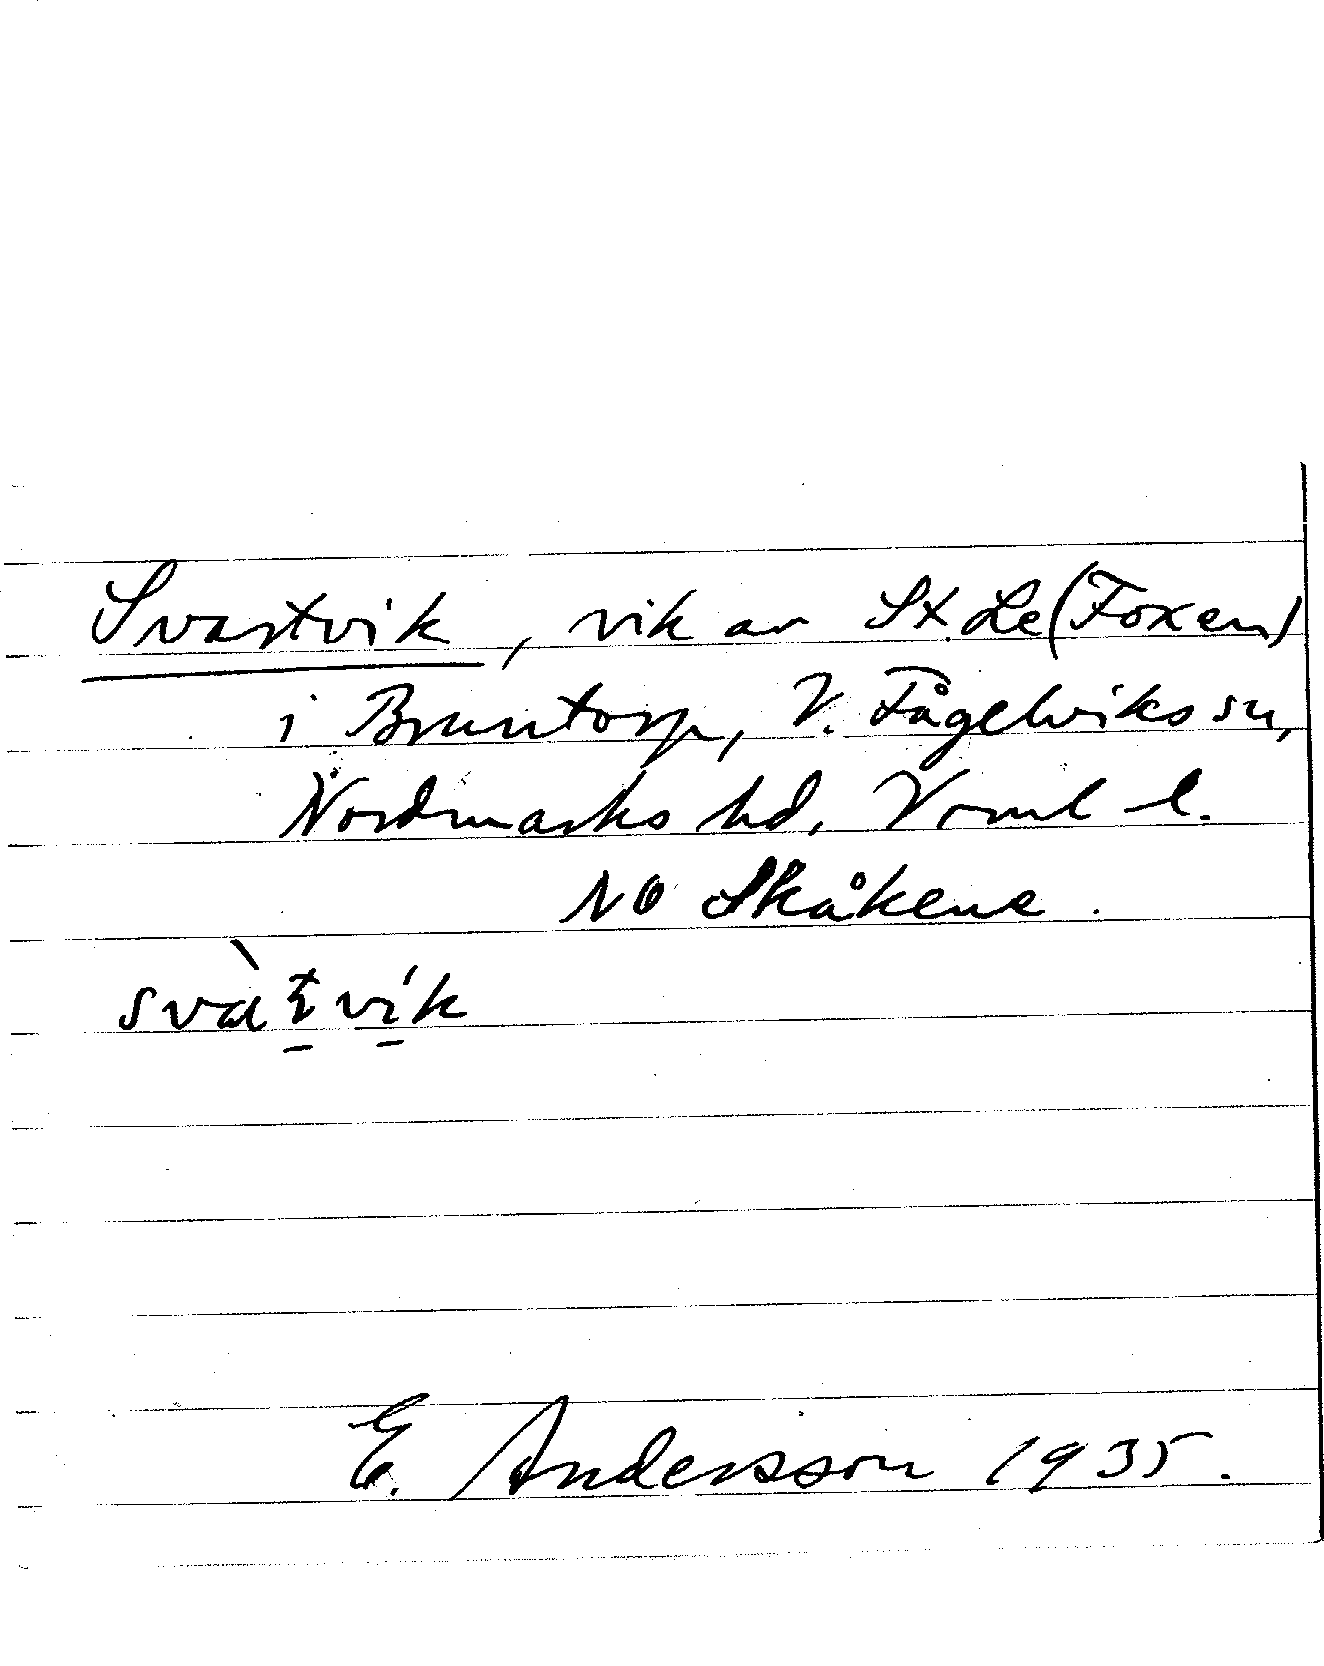 Svartvik, vik av St. Le (Foxen)
i Bruntorp, V. Fågelviks sn,
Nordmarks hd, Vrml l.
NO Skåkene.
svàʈvík
E. Andersson 1935.